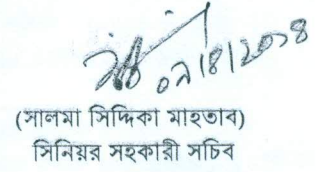 ০৭/৪/২০১৪
(সালমা সিদ্দিকা মাহতাব)
সিনিয়র সহকারী সচিব